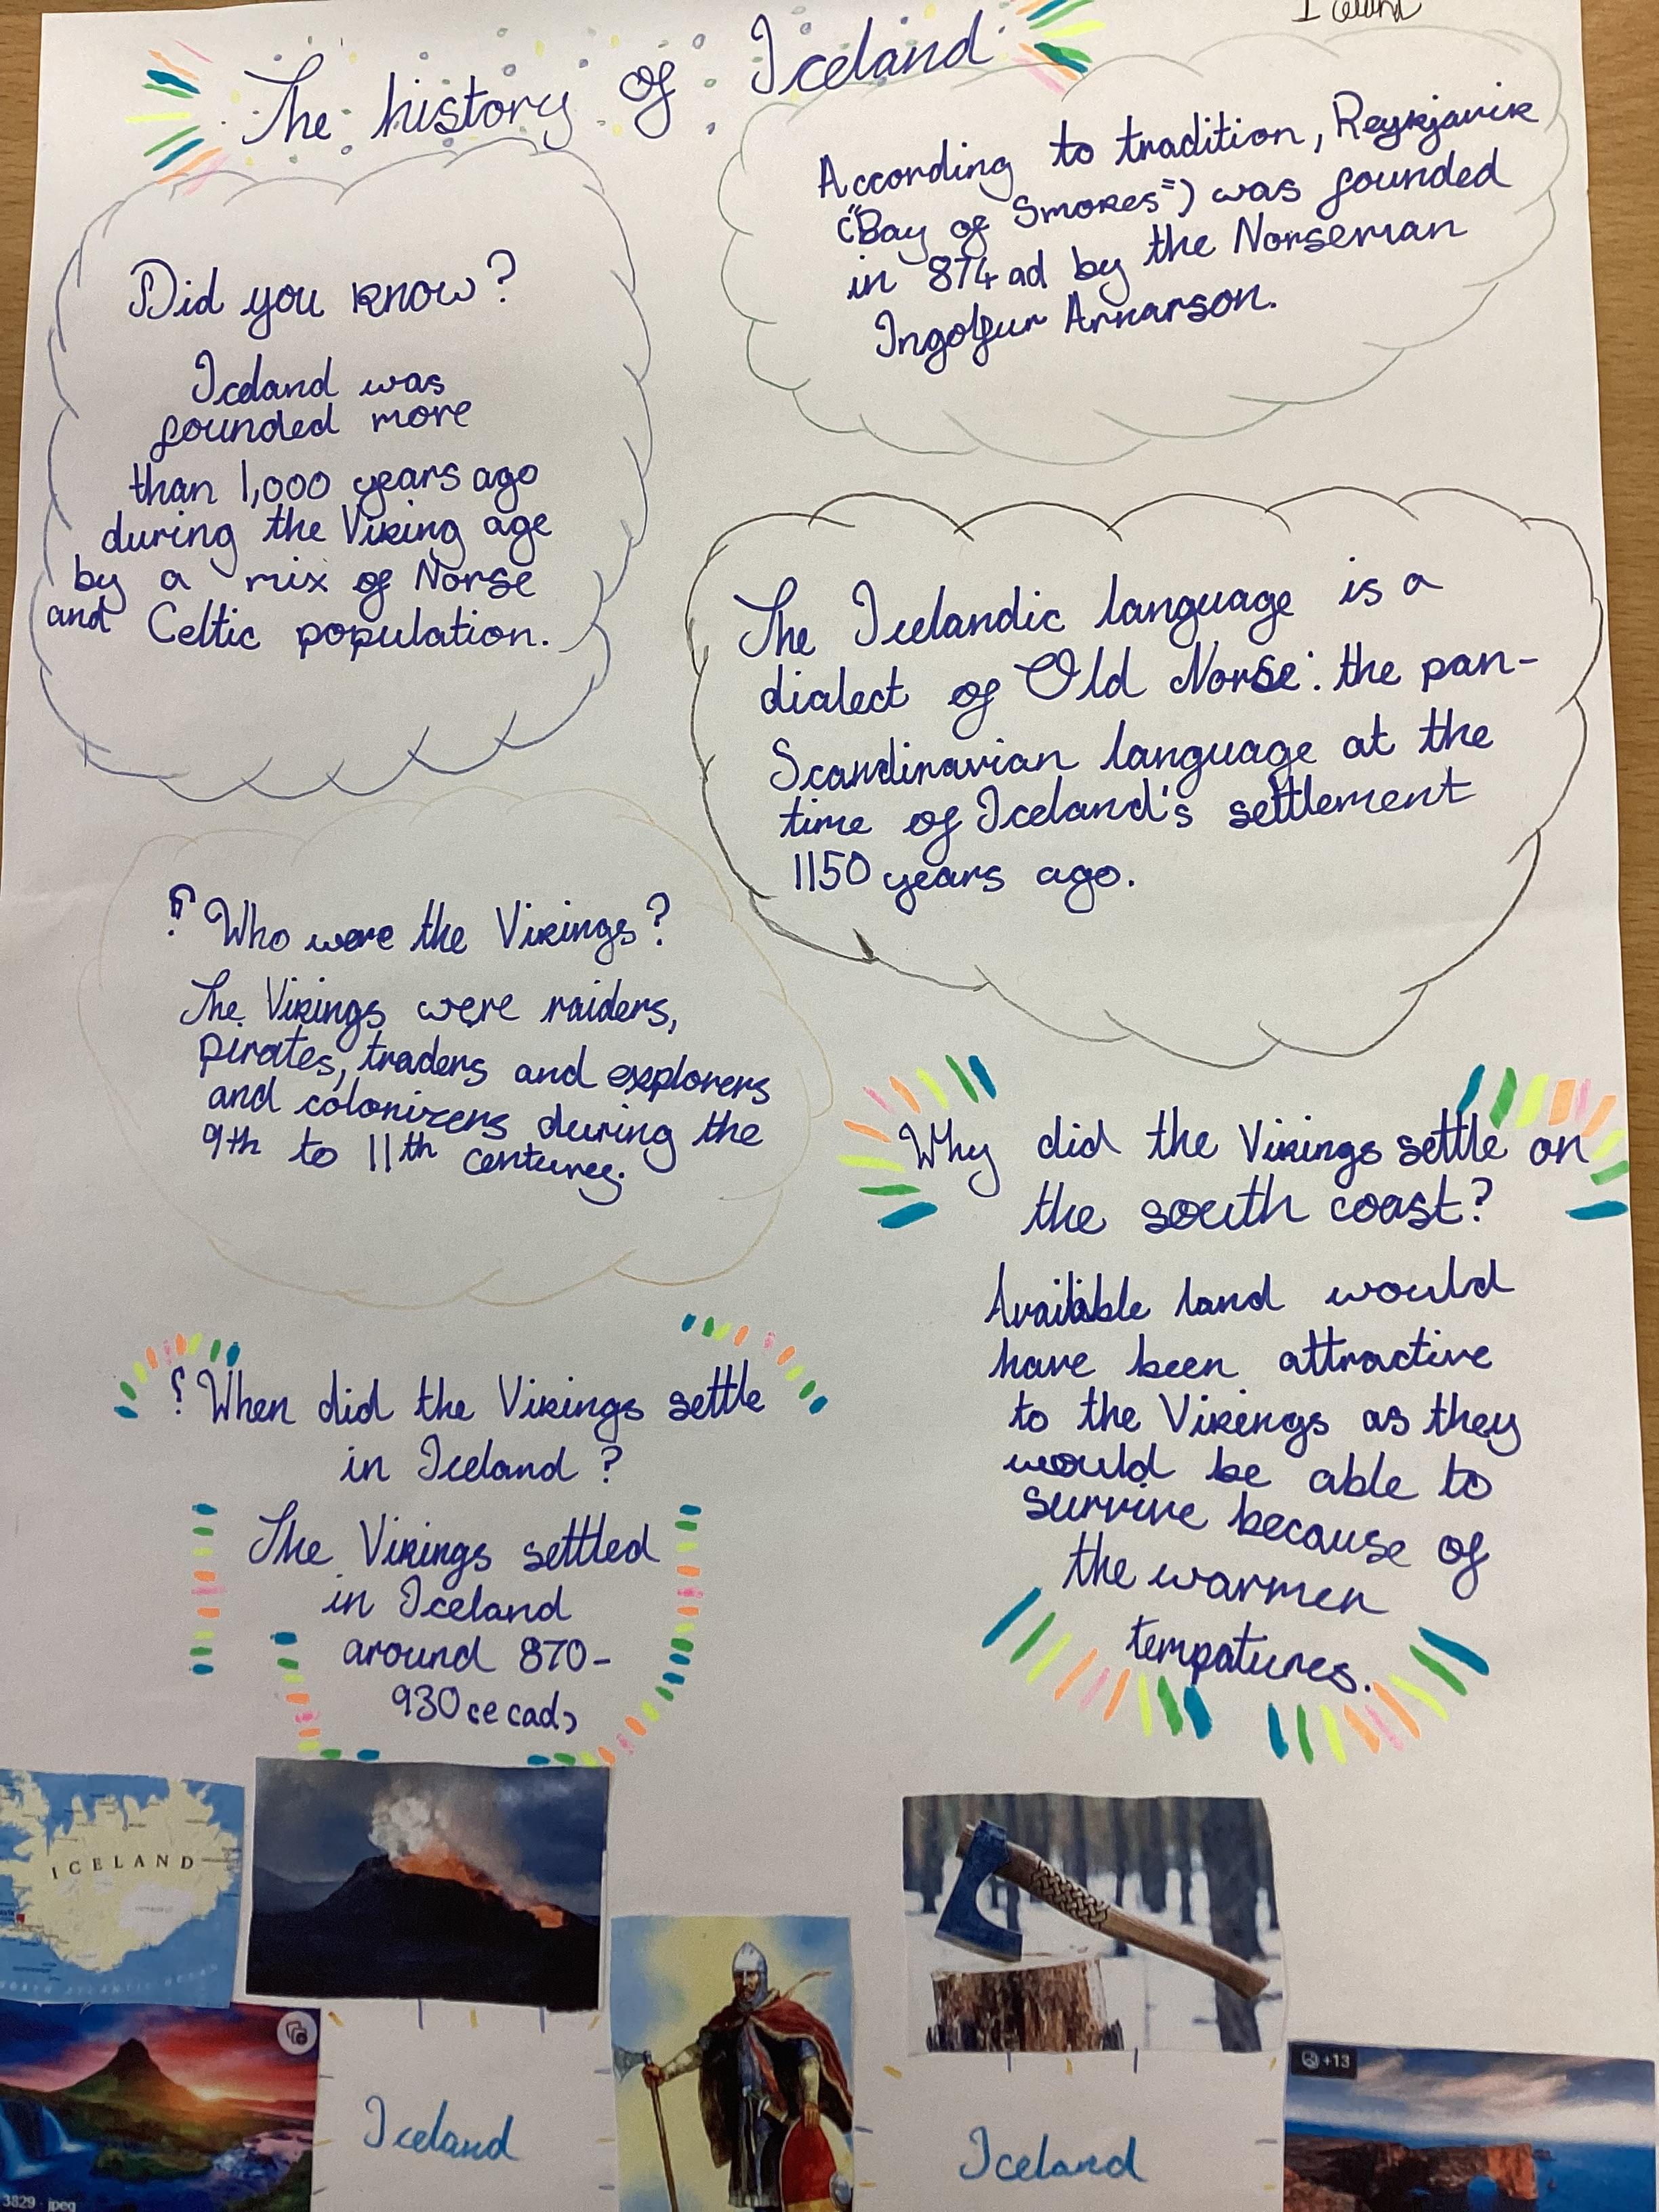 Iceland
The history of Iceland
Did you know?
Iceland was
founded more
than 1,000 years ago
during the Viking age
by a mix of Norse
and Celtic population.
According to tradition, Reykjavik
("Bay of Smokes") was founded
in 874 ad by the Norseman
Ingolfur Arnarson.
The Icelandic language is a
dialect of Old Norse: the pan-
Scandinavian language at the
time of Iceland's settlement
1150 years ago.
¿ Who were the Vikings?
The Vikings were raiders,
pirates, traders and explorers
and colonizers during the
9th to 11th centurey.
Why did the Vikings settle on
the south coast?
Available land would
have been attractive
to the Vikings as they
would be able to
survive because of
the warmer
tempatures.
¿ When did the Vikings settle
in Iceland ?
The Vikings settled
in Iceland
around 870-
930 ce cad)
ICELAND
Iceland
Iceland
+13
3829 · jpeg